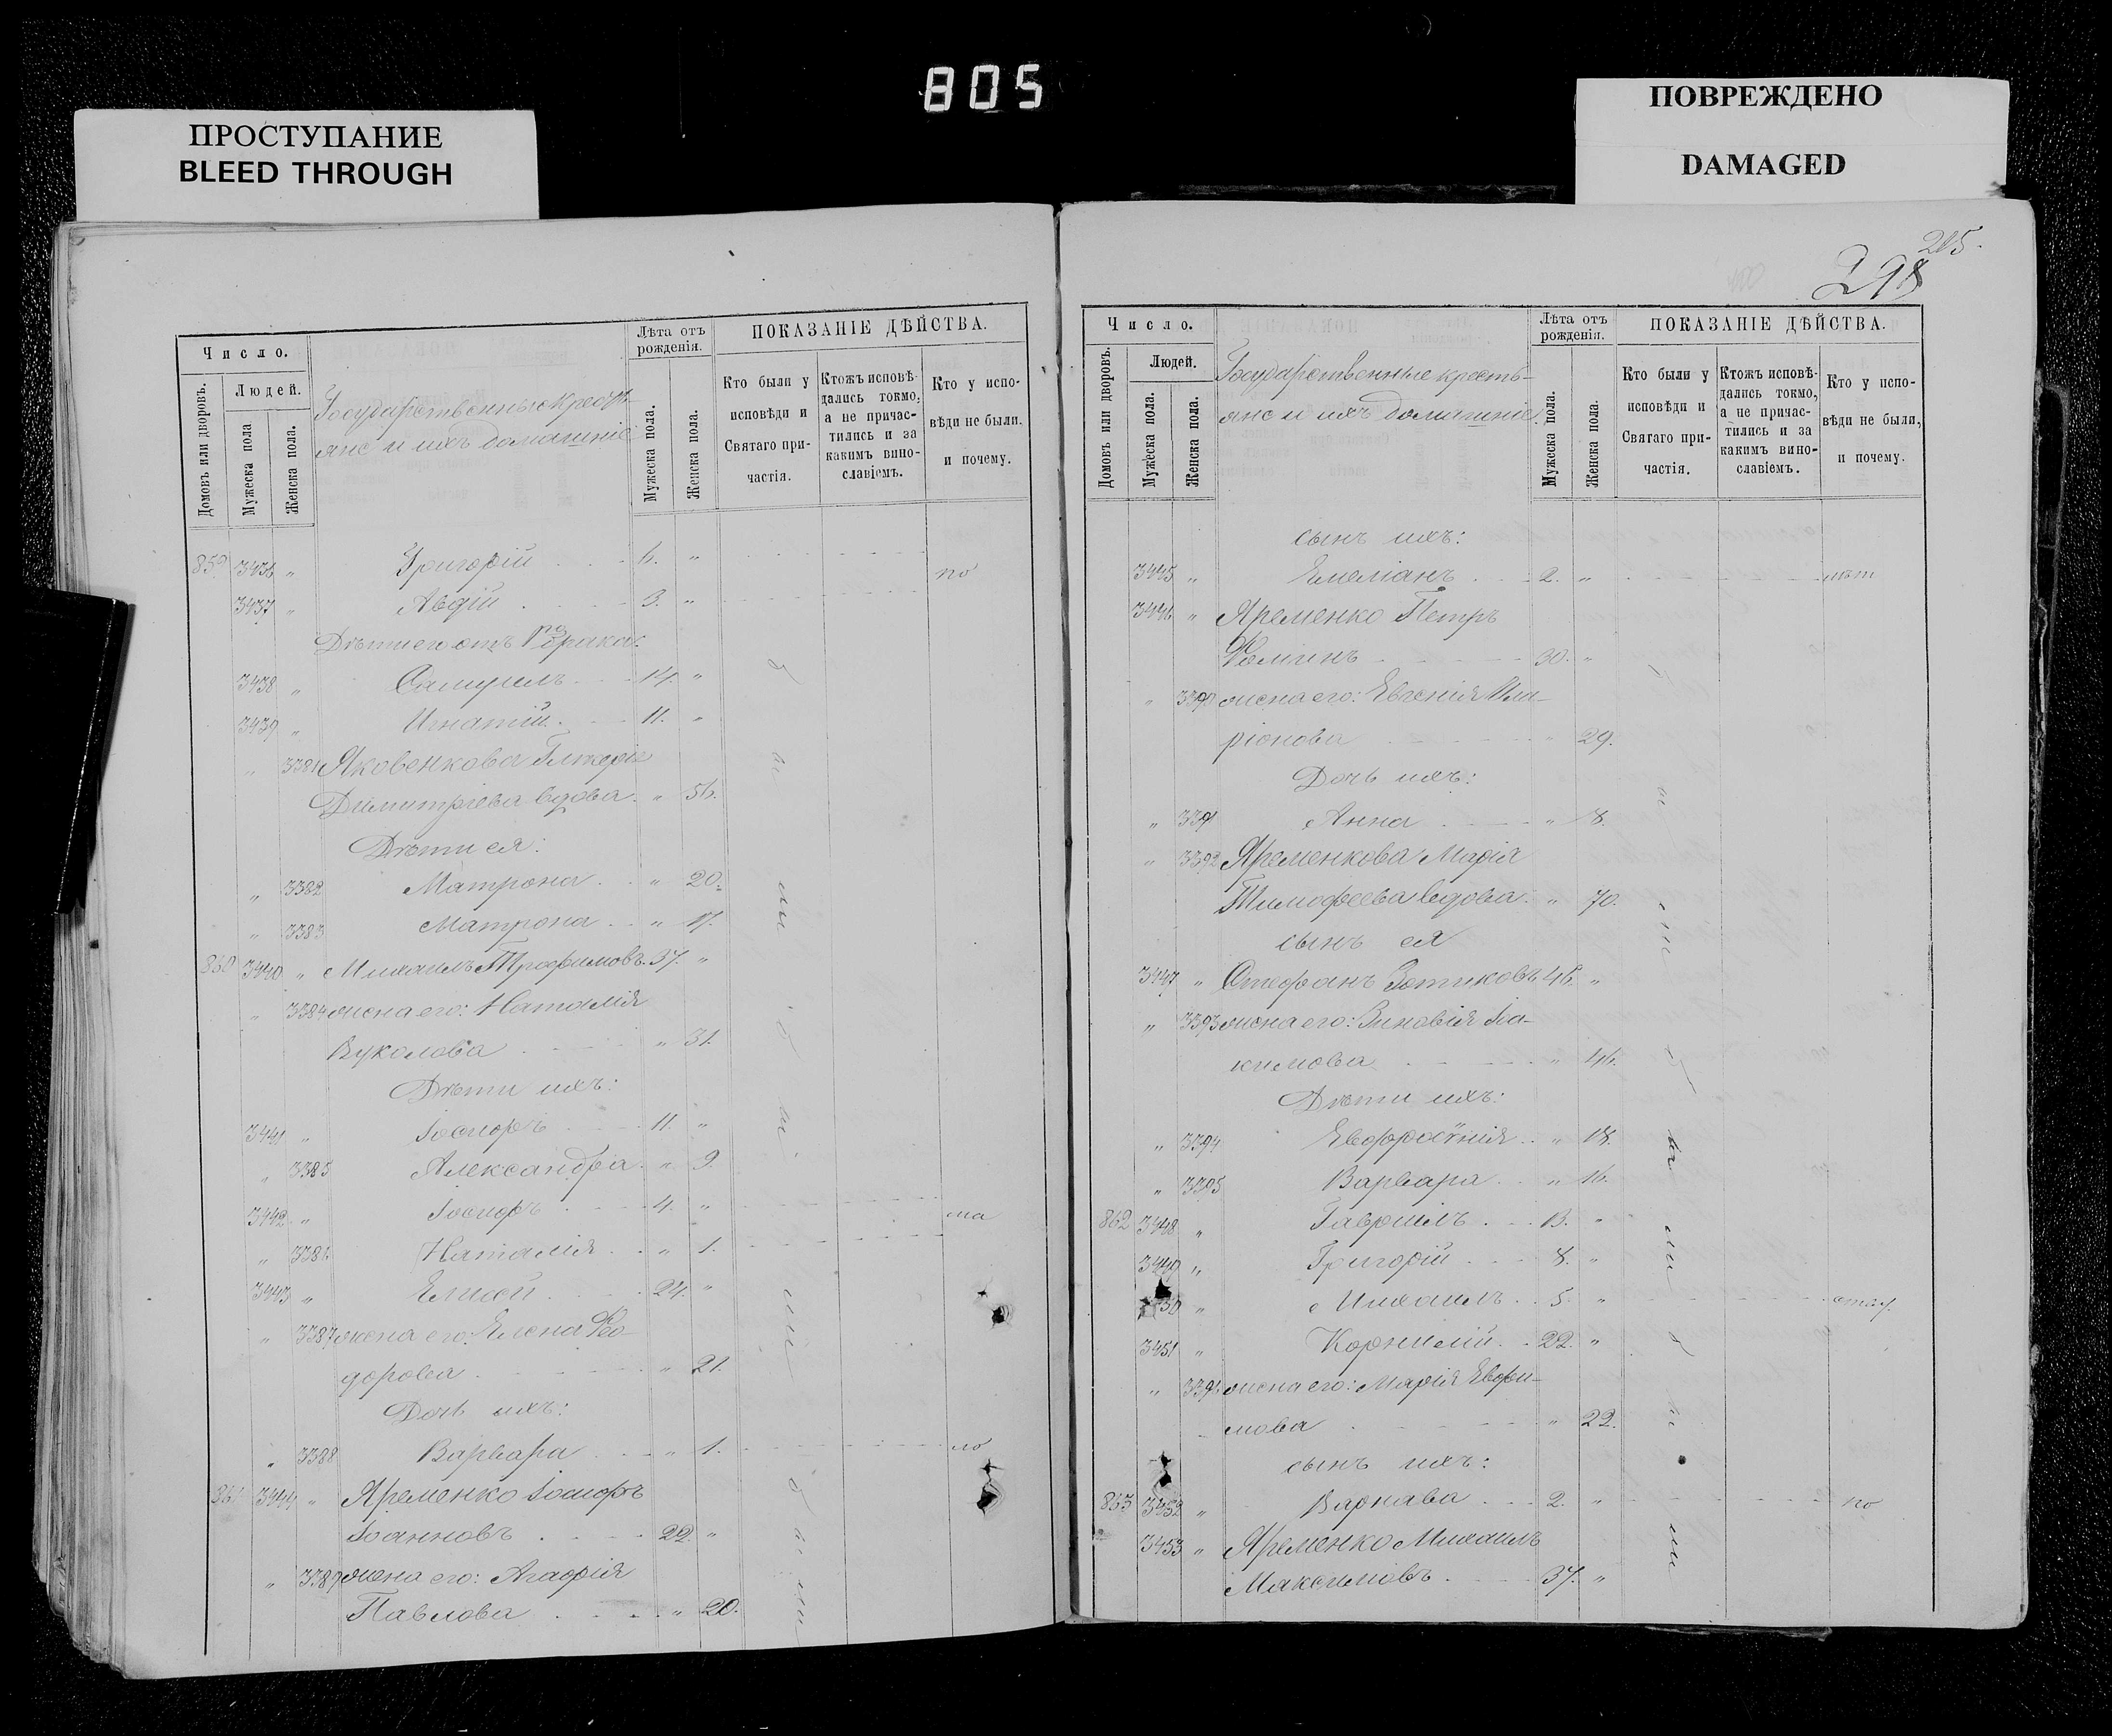 805
ПРОСТУПАНИЕ
BLEED THROUGH
ПОВРЕЖДЕНО
DAMAGED
Число.
Домовъ или дворовъ.
Людей.
Мужеска пола
Женска пола.
Государственные кресть-
яне и ихъ домашніе
Лѣта отъ рожденія.
Мужеска пола.
Женска пола.
ПОКАЗАНІЕ ДѢЙСТВА.
Кто были у исповѣди и Святаго при-частія.
Ктожъ исповѣ-дались токмо, а не причас-тились и за какимъ вино-славіемъ.
Кто у испо-вѣди не были, и почему.
859 3436 " Григорій 6. "
3437 " Авдій 3. " по
Дѣти его отъ 1го брака:
3438 " Самуилъ 14. "
3439 " Игнатій 11. "
" 3381 Яковенкова Гликерія
Димитріева вдова. " 56.
Дѣти ея:
" 3382 Матрона " 20.
" 3383 Матрона " 17.
860 3440 " Михаилъ Трофимовъ 37. "
" 3384 жена его: Наталія
Вуколова " 31.
Дѣти ихъ:
3441 " Іосифъ 11. "
" 3385 Александра " 9.
3442 " Іосифъ 4. " ма
" 3386 Наталія " 1.
3443 " Елисей 24. "
" 3387 жена его: Елена Ѳео-
дорова " 21.
Дочь ихъ:
" 3388 Варвара " 1. ло
861 3444 " Яременко Іосифъ
Іоанновъ 22. "
" 3389 жена его: Агафія
Павлова " 20.
205.
298
Число.
Домовъ или дворовъ.
Людей.
Мужеска пола.
Женска пола.
Государственные кресть-
яне и ихъ домашніе
Лѣта отъ рожденія.
Мужеска пола.
Женска пола.
ПОКАЗАНІЕ ДѢЙСТВА.
Кто были у исповѣди и Святаго при-частія.
Ктожъ исповѣ-дались токмо, а не причас-тились и за какимъ вино-славіемъ.
Кто у испо-вѣди не были, и почему.
сынъ ихъ:
3445 " Емеліанъ 2. " лѣт
3446 " Яременко Петръ
Ѳоминъ 30. "
" 3390 жена его: Евгенія Ила-
ріонова " 29.
Дочь ихъ:
" 3391 Анна " 8.
" 3392 Яременкова Марія
Тимофеева вдова. " 70.
сынъ ея
3447 " Стефанъ Зотиковъ 46. "
" 3393 жена его: Зиновія Іа-
кимова " 46.
Дѣти ихъ:
" 3394 Евфросинія " 18.
" 3395 Варвара " 16.
862 3448 " Гавріилъ 13. "
3449 " Григорій 8. "
50 " Михаилъ 5. "
3451 " Корнилій 22. "
" 3396 жена его: Марія Евфи-
мова " 22.
сынъ ихъ:
863 3452 " Варнава 2. " по
3453 " Яременко Михаилъ
Максимовъ 37. "